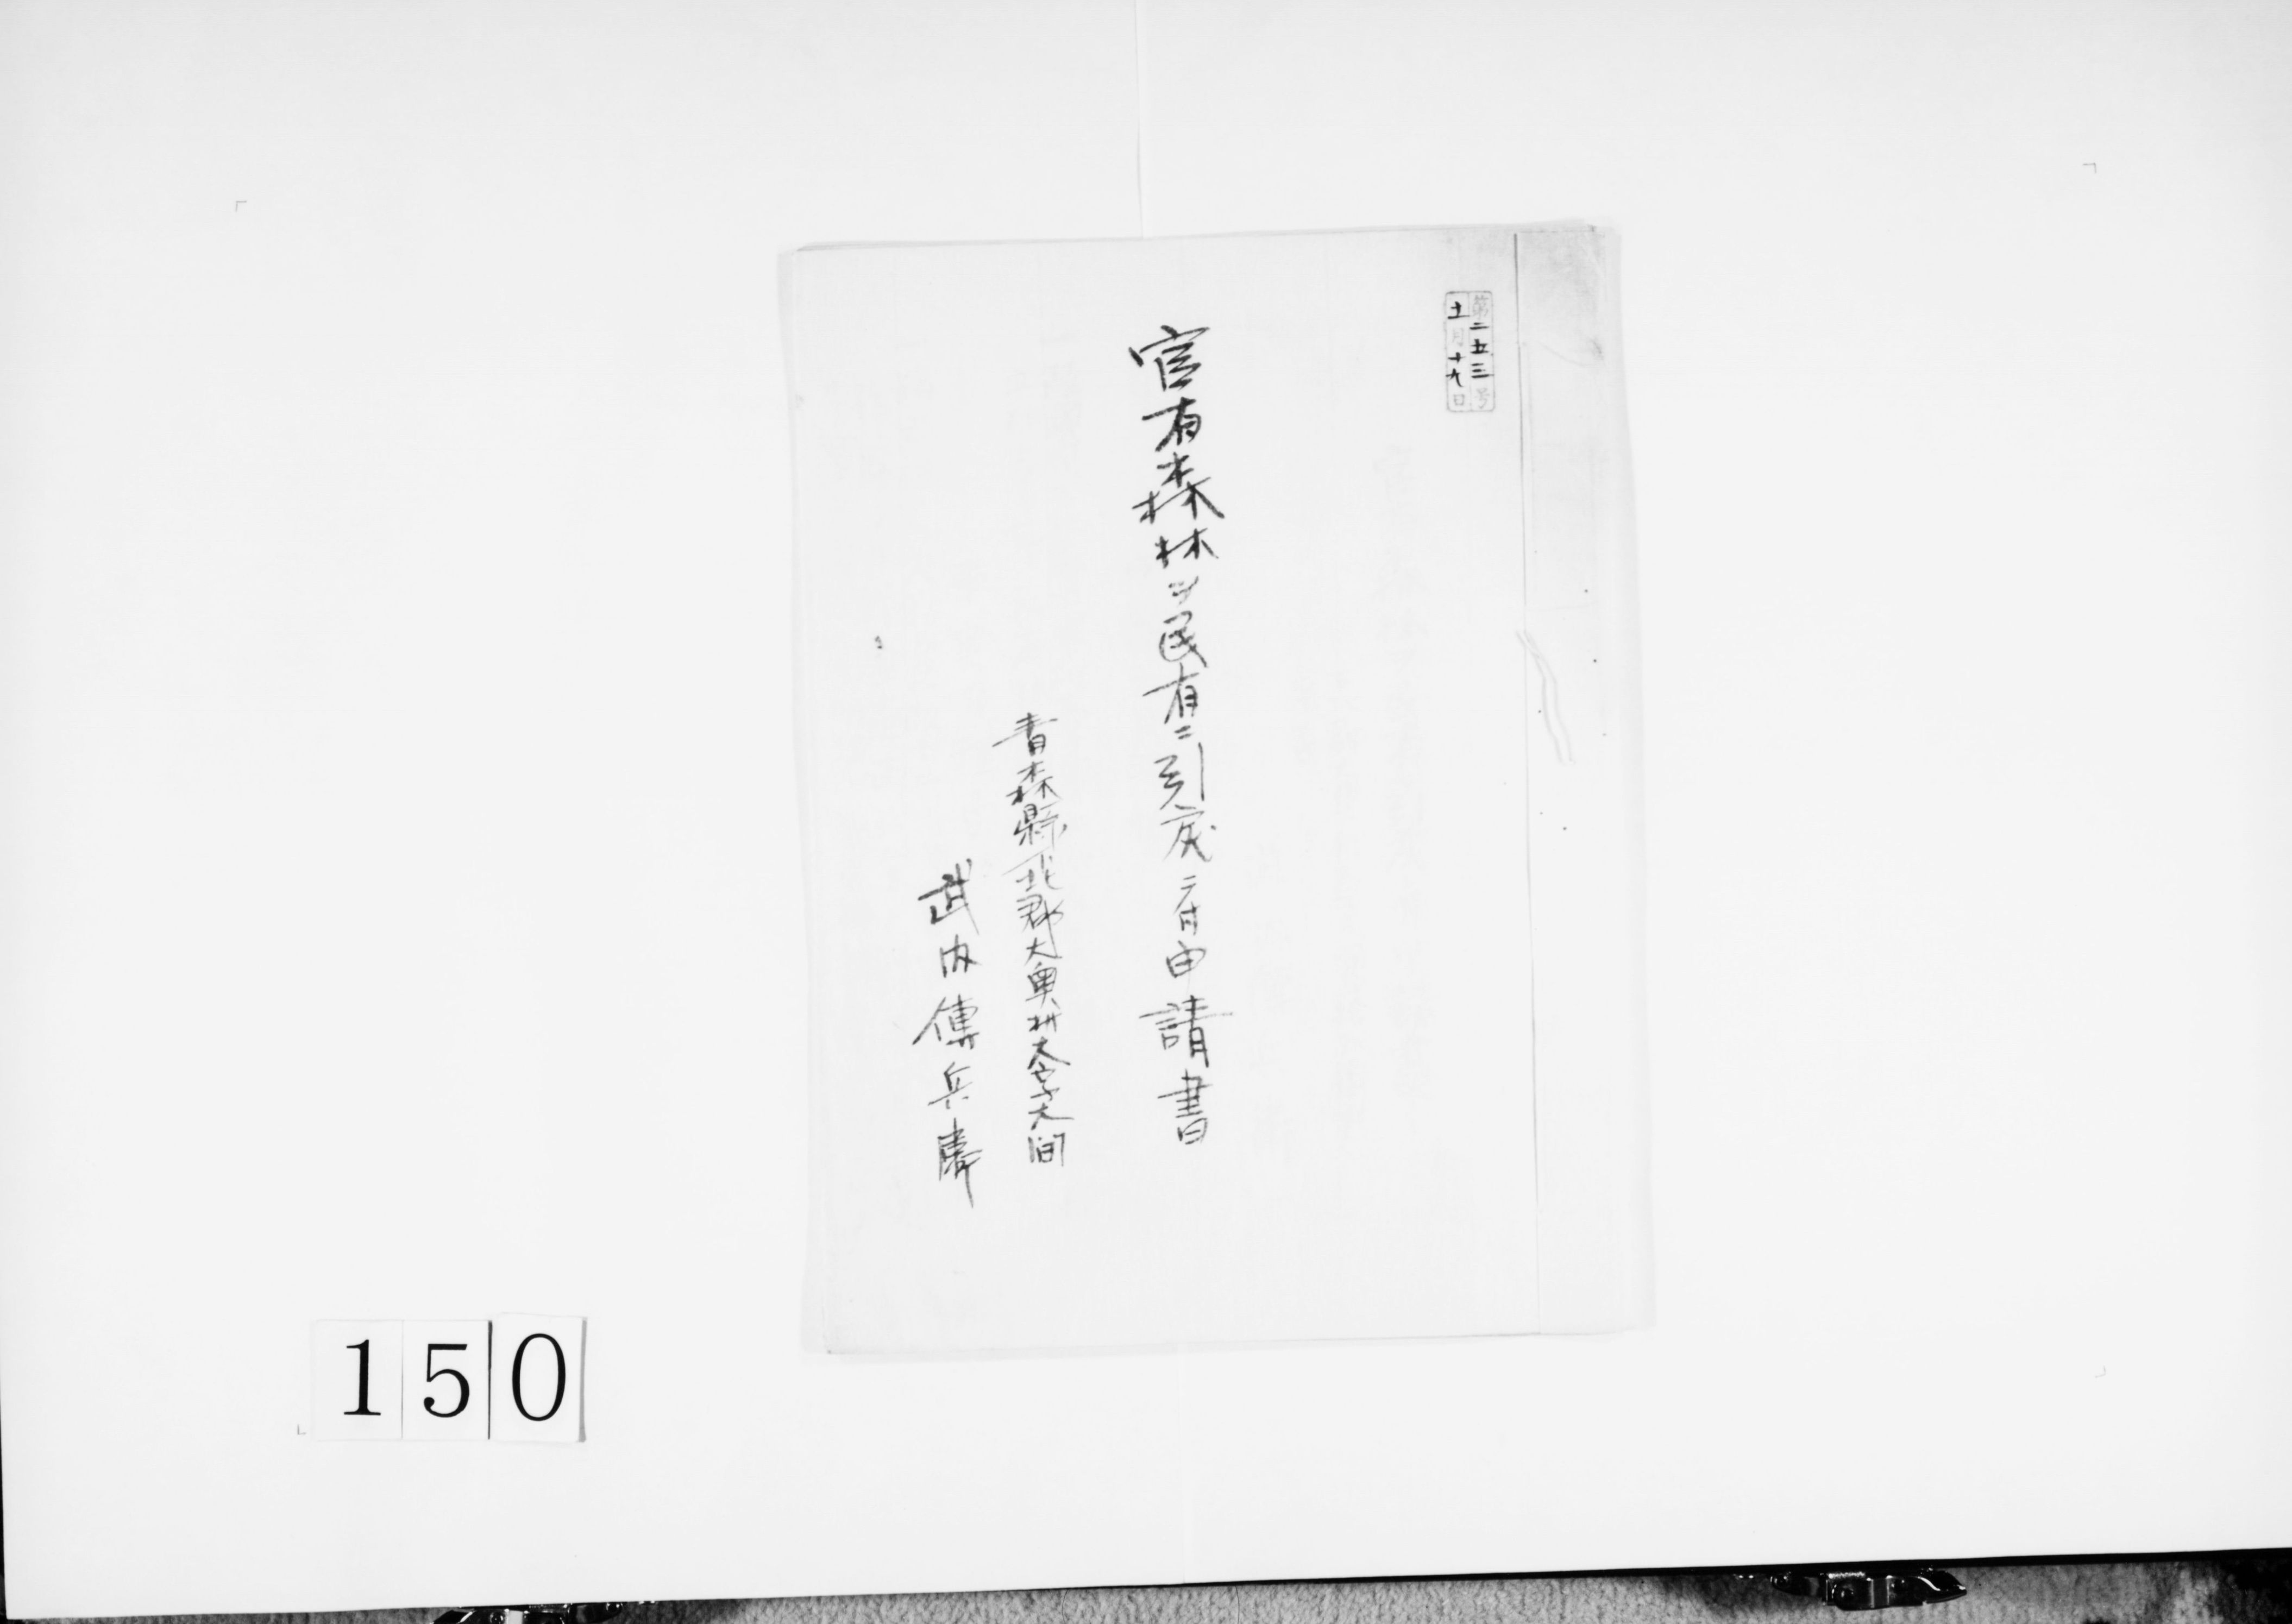 第二五三号
十一月十九日
官有森林ヲ民有ニ引戻ニ付申請書
青森縣北郡大奥村大字大間
武内傳兵衛
150